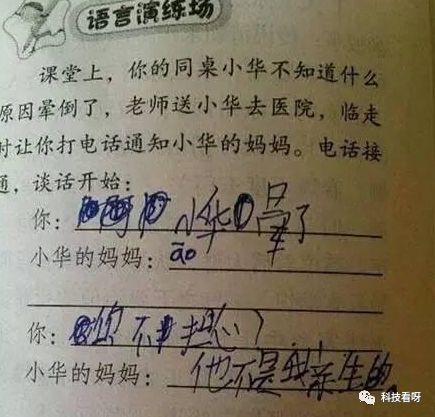 语言演练场
课堂上，你的同桌小华不知道什么
原因晕倒了，老师送小华去医院，临走
时让你打电话通知小华的妈妈。电话接
通，谈话开始：
你：小华晕了
小华的妈妈：āo
你：你不担心
小华的妈妈：他不是我亲生的
科技看呀